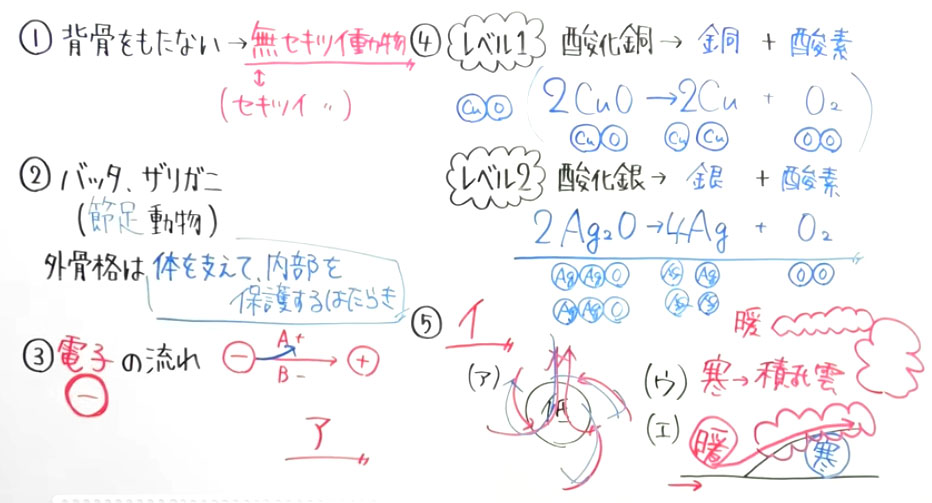 ① 背骨をもたない→無セキツイ動物
↕
(セキツイ 〃)
② バッタ、ザリガニ
(節足動物)
外骨格は体を支えて、内部を
保護するはたらき
③ 電子の流れ
⊖
⊖ A + B - ⊕
ア
④ レベル1 酸化銅→ 銅 + 酸素
Cu O (2CuO→2Cu + O₂)
Cu O Cu Cu O O
レベル2 酸化銀→ 銀 + 酸素
2Ag₂O→4Ag + O₂
Ag Ag O Ag Ag O O
Ag Ag O Ag Ag
⑤ イ
(ア) 低
暖
(ウ) 寒→積乱雲
(エ) 暖 寒